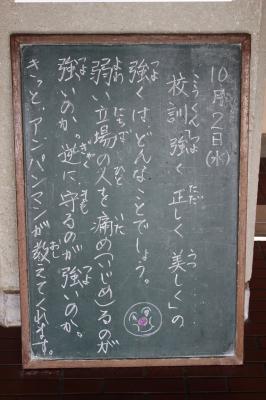 10月2日(水)
校訓「強く 正しく 美しく」の
こうくん つよ ただ うつ
強くは、どんなことでしょう。
つよ
弱い立場の人を痛め(いじめ)るのが
よわ たちば ひと いた
強いのか。逆に守るのが強いのか。
つよ ぎゃく まも つよ
きっと、アンパンマンが教えてくれます。
おし